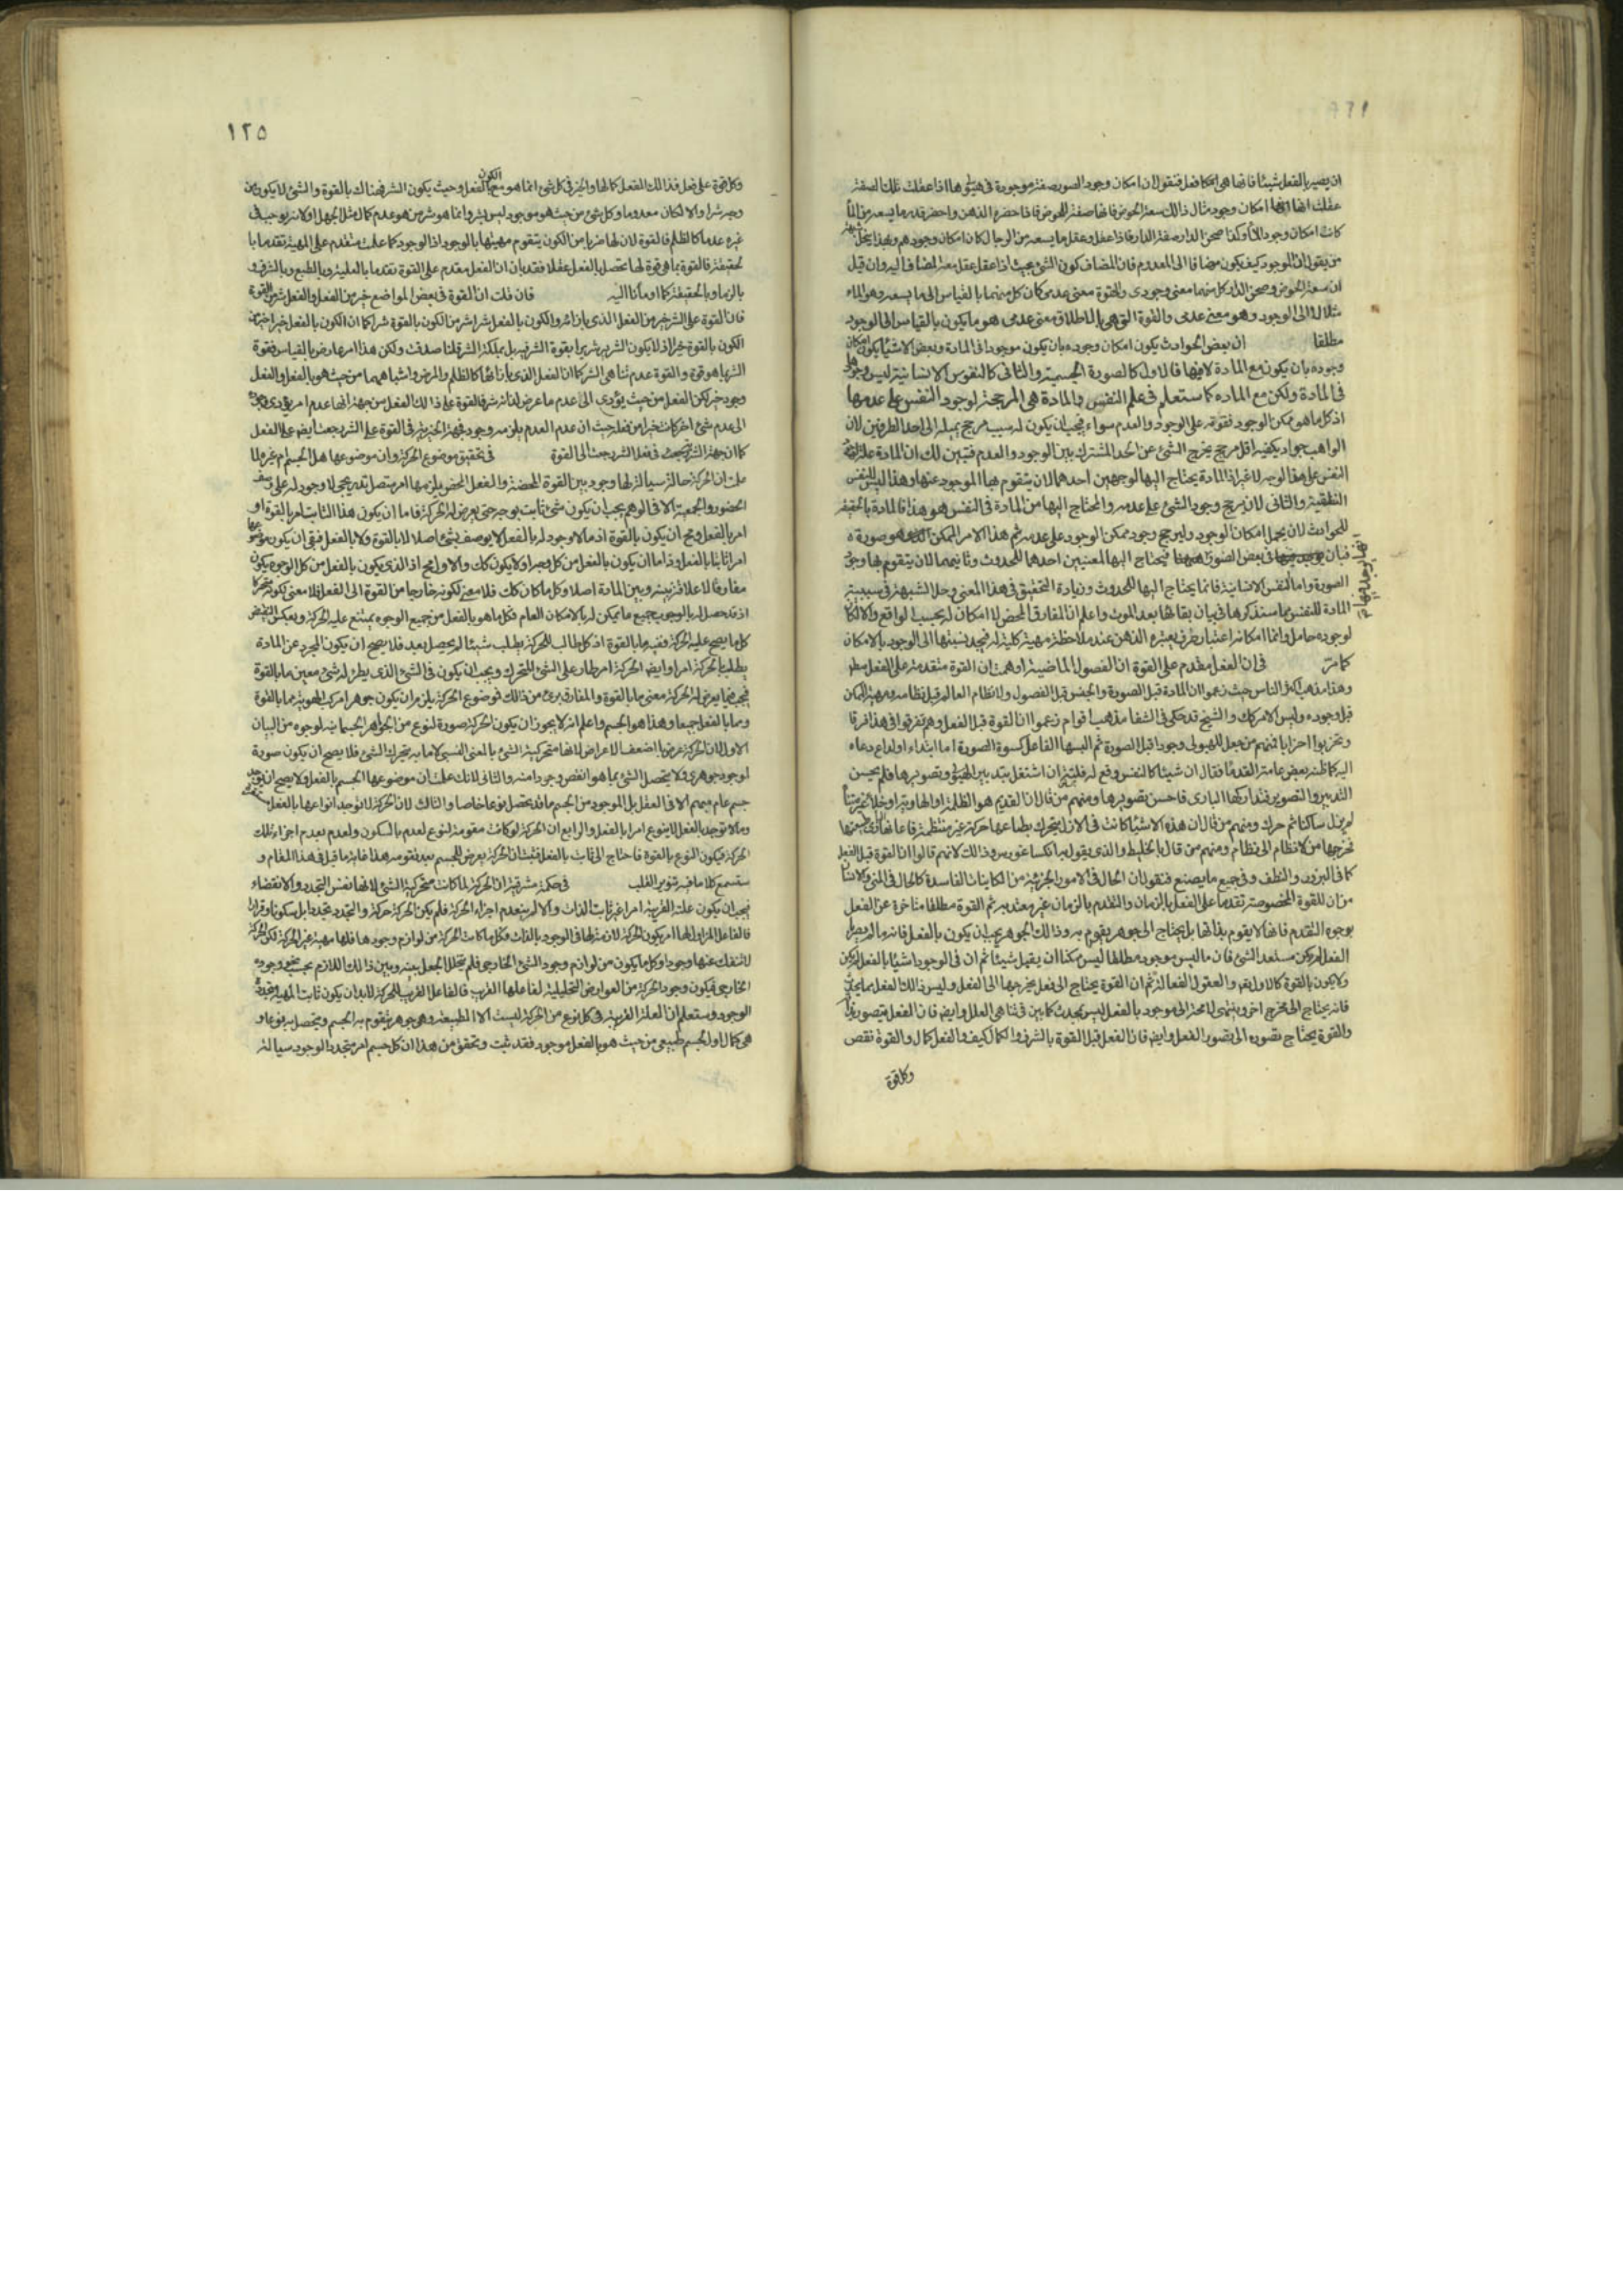 ان يصير بالفعل شيئا فانها هى امكانها فعل فنقول ان امكان وجود الصور صفة موجودة فى هيوليها اذا عقلت تلك الصفة
عقلت انها امكان وجود مثال ذالك سعة الحوض فانها صفة للحوض فاذا حضره الذهن واحضر قدر ما يسعه من الماء
كانت امكان وجود الماء وكذا صحن الدار صفة الدار فاذا عقل وعقل ما يسعه من الرجال كان امكان وجودهم وبهذا ينحل
من يقول ان الموجود كيف يكون مضافا الى المعدوم فان المضاف كون الشئ بحيث اذا عقل عقل معه المضاف اليه وان قيل
ان سعة الحوض وصحن الدار كل منهما معنى وجودى والقوة معنى عدمى كان كل منهما بالقياس الى ما يسعه وهو الماء
مثلا الى الوجود وهو معنى عدمى والقوة التى هى بالاطلاق معنى عدمى هو ما يكون بالقياس الى الوجود
مطلقا ان بعض الحوادث يكون امكان وجوده بان يكون موجودا فى المادة وبعض الاشيا يكون امكان
وجوده بان يكون مع المادة لا فيها فالاول كالصورة الجسمية والثانى كالنفوس الانسانية ليس وجودها
فى المادة ولكن مع المادة كما ستعلم فى علم النفس والمادة هى المرجحة لوجود النفس على عدمها
اذ كل ما هو ممكن الوجود فقوته على الوجود والعدم سواء فيجب ان يكون له سبب مرجح يميله الى احد الطرفين لان
الواهب جواد يكفيه اقل مرجح يخرج الشئ عن الحد المشترك بين الوجود والعدم فتبين لك ان المادة علة
النفس على هذا الوجه لا غير اذ المادة يحتاج اليها لوجهين احدهما لان يتقوم بها الموجود عنها وهذا ليس للنفس
النطقية والثانى لان يرجح وجود الشئ على عدمه والمحتاج اليها من المادة فى النفس هو هذا فالمادة بالحقيقة
للحوادث لان يحمل امكان الوجود وليرجح وجود ممكن الوجود على عدمه ثم هذا الامر الممكن هو صورة
فبان فى بعض الصور فيحتاج اليها لمعنيين احدهما للحدوث وثانيهما لان يتقوم بها وجود
الصورة واما النفس الانسانية فانما يحتاج اليها للحدوث وزيادة التحقيق فى هذا المعنى وحل الشبهة فى سببية
المادة للنفس مما سنذكرها فى بيان بقائها بعد الموت واعلم ان المفارق المحض لا امكان له بحسب الواقع والا لكان
لوجوده حامل وانما امكانه اعتبار صرف يعتبره الذهن عند ملاحظة مهية كلية له فيجد نسبتها الى الوجود بالامكان
كما مر فى ان الفعل مقدم على القوة ان الفصول الماضية اوهمت ان القوة متقدمة على الفعل مطلقا
وهذا مذهب اكثر الناس حيث زعموا ان المادة قبل الصورة والجنس قبل الفصول ولا نظام العالم قبل نظامه ومهية الممكن
قبل وجوده وليس الامر كك والشيخ قد حكى فى الشفا مذهب اقوام زعموا ان القوة قبل الفعل وهم تفرقوا فى هذا فرقا
وتحزبوا احزابا فمنهم من جعل للهيولى وجودا قبل الصورة ثم البسها الفاعل كسوة الصورة اما ابتداء او لداع دعاه
اليه كما ظنه بعض عامة القدما فقال ان شيئا كالنفس وقع له فلتة ان اشتغل بتدبير الهيولى وتصويرها فلم يحسن
التدبير والتصوير فتداركها البارى فاحسن تصويرها ومنهم من قال ان القديم هو الظلمة او الهاوية او خلاء غير متناه
لم يزل ساكنا ثم حرك ومنهم من قال ان هذه الاشيا كانت فى الازل يتحرك بطباعها حركة غير منتظمة فاعان البارى طبيعتها
فخرجها من لا نظام الى نظام ومنهم من قال بالخليط والذى يقول به انكساغورس وذالك لانهم قالوا ان القوة قبل الفعل
كما فى البزور والنطف وفى جميع ما يصنع فنقول ان الحال فى الامور الجزئية من الكاينات الفاسدة كالحال فى المنى والانسان
من ان للقوة المخصوصة تقدما على الفعل بالزمان والتقدم بالزمان غير معتد به ثم القوة مطلقا متاخرة عن الفعل
بوجوه التقدم فانها لا يقوم بذاتها بل يحتاج الى جوهر يقوم به وذالك الجوهر يجب ان يكون بالفعل فانه ما لم يصر
الفعل لم يكن مستعد الشئ فان ما ليس موجودا مطلقا ليس ممكنا ان يقبل شيئا ثم ان فى الوجود اشيا بالفعل لم يكن
ولا يكون بالقوة كالاول تعالى والعقول الفعالة ثم ان القوة يحتاج الى فعل يخرجها الى الفعل وليس ذالك الفعل مما يحدث
فانه يحتاج الى مخرج اخر وينتهى لا محة الى موجود بالفعل ليس بمحدث كما بين فى تناهى العلل وايض فان الفعل يتصور بذاته
والقوة يحتاج تصوره الى تصور الفعل وايض فان الفعل قبل القوة بالشرف والكمال كيف والفعل كمال والقوة نقص
وكل قوة
١٢٥
وكل قوة على فعل فذالك الفعل كمالها والخير فى كل شئ انما هو مع الكون بالفعل وحيث يكون الشر فهناك بالقوة والشئ لا يكون من
وجه شرا والا لكان معدوما وكل شئ من حيث هو موجود ليس بشر وانما هو شر من هو عدم كمال مثل الجهل او لانه يوجب فى
غيره عدما كالظلم فالقوة لان لها ضربا من الكون يتقوم مهيتها بالوجود اذ الوجود كما علمت متقدم على المهية تقدما با
لحقيقة فالقوة بما هى قوة لها تحصل بالفعل عقلا فقد بان ان الفعل مقدم على القوة تقدما بالعلية وبالطبع وبالشرف و
بالزمان وبالحقيقة كما اومأنا اليه فان قلت ان القوة فى بعض المواضع خير من الفعل والفعل شر من القوة
فان القوة على الشر خير من الفعل الذى بازائه والكون بالفعل شرا شر من الكون بالقوة شرا كما ان الكون بالفعل خيرا خير من
الكون بالقوة خيرا اذ لا يكون الشرير شريرا بقوة الشر فيه بل بملكة الشر قلنا صدقت ولكن هذا امر عارض بالقياس فقوة
الشر بما هو قوة والقوة عدم تناهى الشر كما ان الفعل الذى بازائها كالظلم والمرض واشباههما من حيث هو بالفعل والفعل
وجود خير لكن الفعل من حيث يؤدى الى عدم ما عرض لذاته شر فالقوة على ذالك الفعل من جهة انها عدم امر يؤدى وجوده
الى عدم شئ اخر كانت خيرا من فعله حيث ان عدم العدم يلزمه وجود فجهة الخيرية فى القوة على الشر رجعت ايض على الفعل
كما ان جهة الشرية فى فعل الشر رجعت الى القوة فى تحقيق موضوع الحركة وان موضوعها هل الجسم ام غيره لما
علمت ان الحركة حالة سيالة لها وجود بين القوة المحضة والفعل المحض يلزمها امر متصل تدريجى لا وجود له على وصف
الحضور والجمعية الا فى الوهم يجب ان يكون شئ ثابت بوجه حتى يعرض له الحركة فاما ان يكون هذا الثابت امرا بالقوة او
امرا بالفعل ومح ان يكون بالقوة اذ ما لا وجود له بالفعل لا يوصف بشئ اصلا لا بالقوة ولا بالفعل فبقى ان يكون موضوعها
امرا ثابتا بالفعل وذا اما ان يكون بالفعل من كل وجه او لا يكون كك والاول مح اذ الذى يكون بالفعل من كل الوجوه يكون
مفارقا لا علاقة بينه وبين المادة اصلا وكل ما كان كك فلا معنى لكونه خارجا من القوة الى الفعل فلا معنى لكونه متحركا
اذ قد حصل له بالوجوب جميع ما يمكن له بالامكان العام فكل ما هو بالفعل من جميع الوجوه يمتنع عليه الحركة وبعكس النقيض
كل ما يصح عليه الحركة ففيه ما بالقوة اذ كل طالب للحركة يطلب شيئا لم يحصل بعد فلا يصح ان يكون المجرد عن المادة
يطلب بالحركة امرا وايض الحركة امر طار على الشئ المتحرك ويجب ان يكون فى الشئ الذى يطرء له شئ معين ما بالقوة
فيجب فيما يعرض له الحركة معنى ما بالقوة والمفارق برئ من ذالك فموضوع الحركة يلزم ان يكون جوهرا مركب الهوية مما بالقوة
ومما بالفعل جميعا وهذا هو الجسم واعلم انه لا يجوز ان يكون الحركة صورة لنوع من الجواهر الجسمانية لوجوه من البيان
الاول ان الحركة عرض بل اضعف الاعراض لانها متحركية الشئ بالمعنى النسبى لا ما به يتحرك الشئ فلا يصح ان يكون صورة
لوجود جوهرى ولا يتحصل الشئ بما هو انقص وجودا منه والثانى لانك علمت ان موضوعها الجسم بالفعل ولا يصح ان يوجد
جسم عام مبهم الا فى العقل بل الموجود من الجسم ما قد تحصل نوعا خاصا والثالث لان الحركة لا توجد انواعها بالفعل
وما لا توجد بالفعل لا ينوع امرا بالفعل والرابع ان الحركة لو كانت مقومة لنوع لعدم بالسكون ولعدم بعدم اجزاء تلك
الحركة فيكون النوع بالقوة فاحتاج الى ثابت بالفعل فثبت ان الحركة يعرض للجسم بعد تقومه هذا غاية ما قيل فى هذا المقام و
ستسمع كلاما فيه تنوير القلب فى حكمة مشرقية ان الحركة لما كانت متحركية الشئ لانها نفس التجدد والانقضاء
فيجب ان يكون علته القريبة امرا غير ثابت الذات والا لم ينعدم اجزاء الحركة فلم يكن الحركة حركة والتجدد تجددا بل سكونا وقرارا
فالفاعل المزاول لها امر يكون الحركة لازمة لها فى الوجود بالذات وكل ما كانت الحركة من لوازم وجودها فلها مهية غير الحركة لكن الحركة
لا تنفك عنها وجودا وكل ما يكون من لوازم وجود الشئ الخارجى فلم يتخلل الجعل بينه وبين ذالك اللازم بحسب نحو وجوده
الخارجى فيكون وجود الحركة من العوارض التحليلية لفاعلها القريب فالفاعل القريب للحركة لابد ان يكون ثابت المهية متجدد
الوجود وستعلم ان العلة القريبة فى كل نوع من الحركة ليست الا الطبيعة وهى جوهر يتقوم به الجسم ويتحصل به نوعا و
هى كمال اول لجسم طبيعى من حيث هو بالفعل موجود فقد ثبت وتحقق من هذا ان كل جسم امر متجدد الوجود سيالة